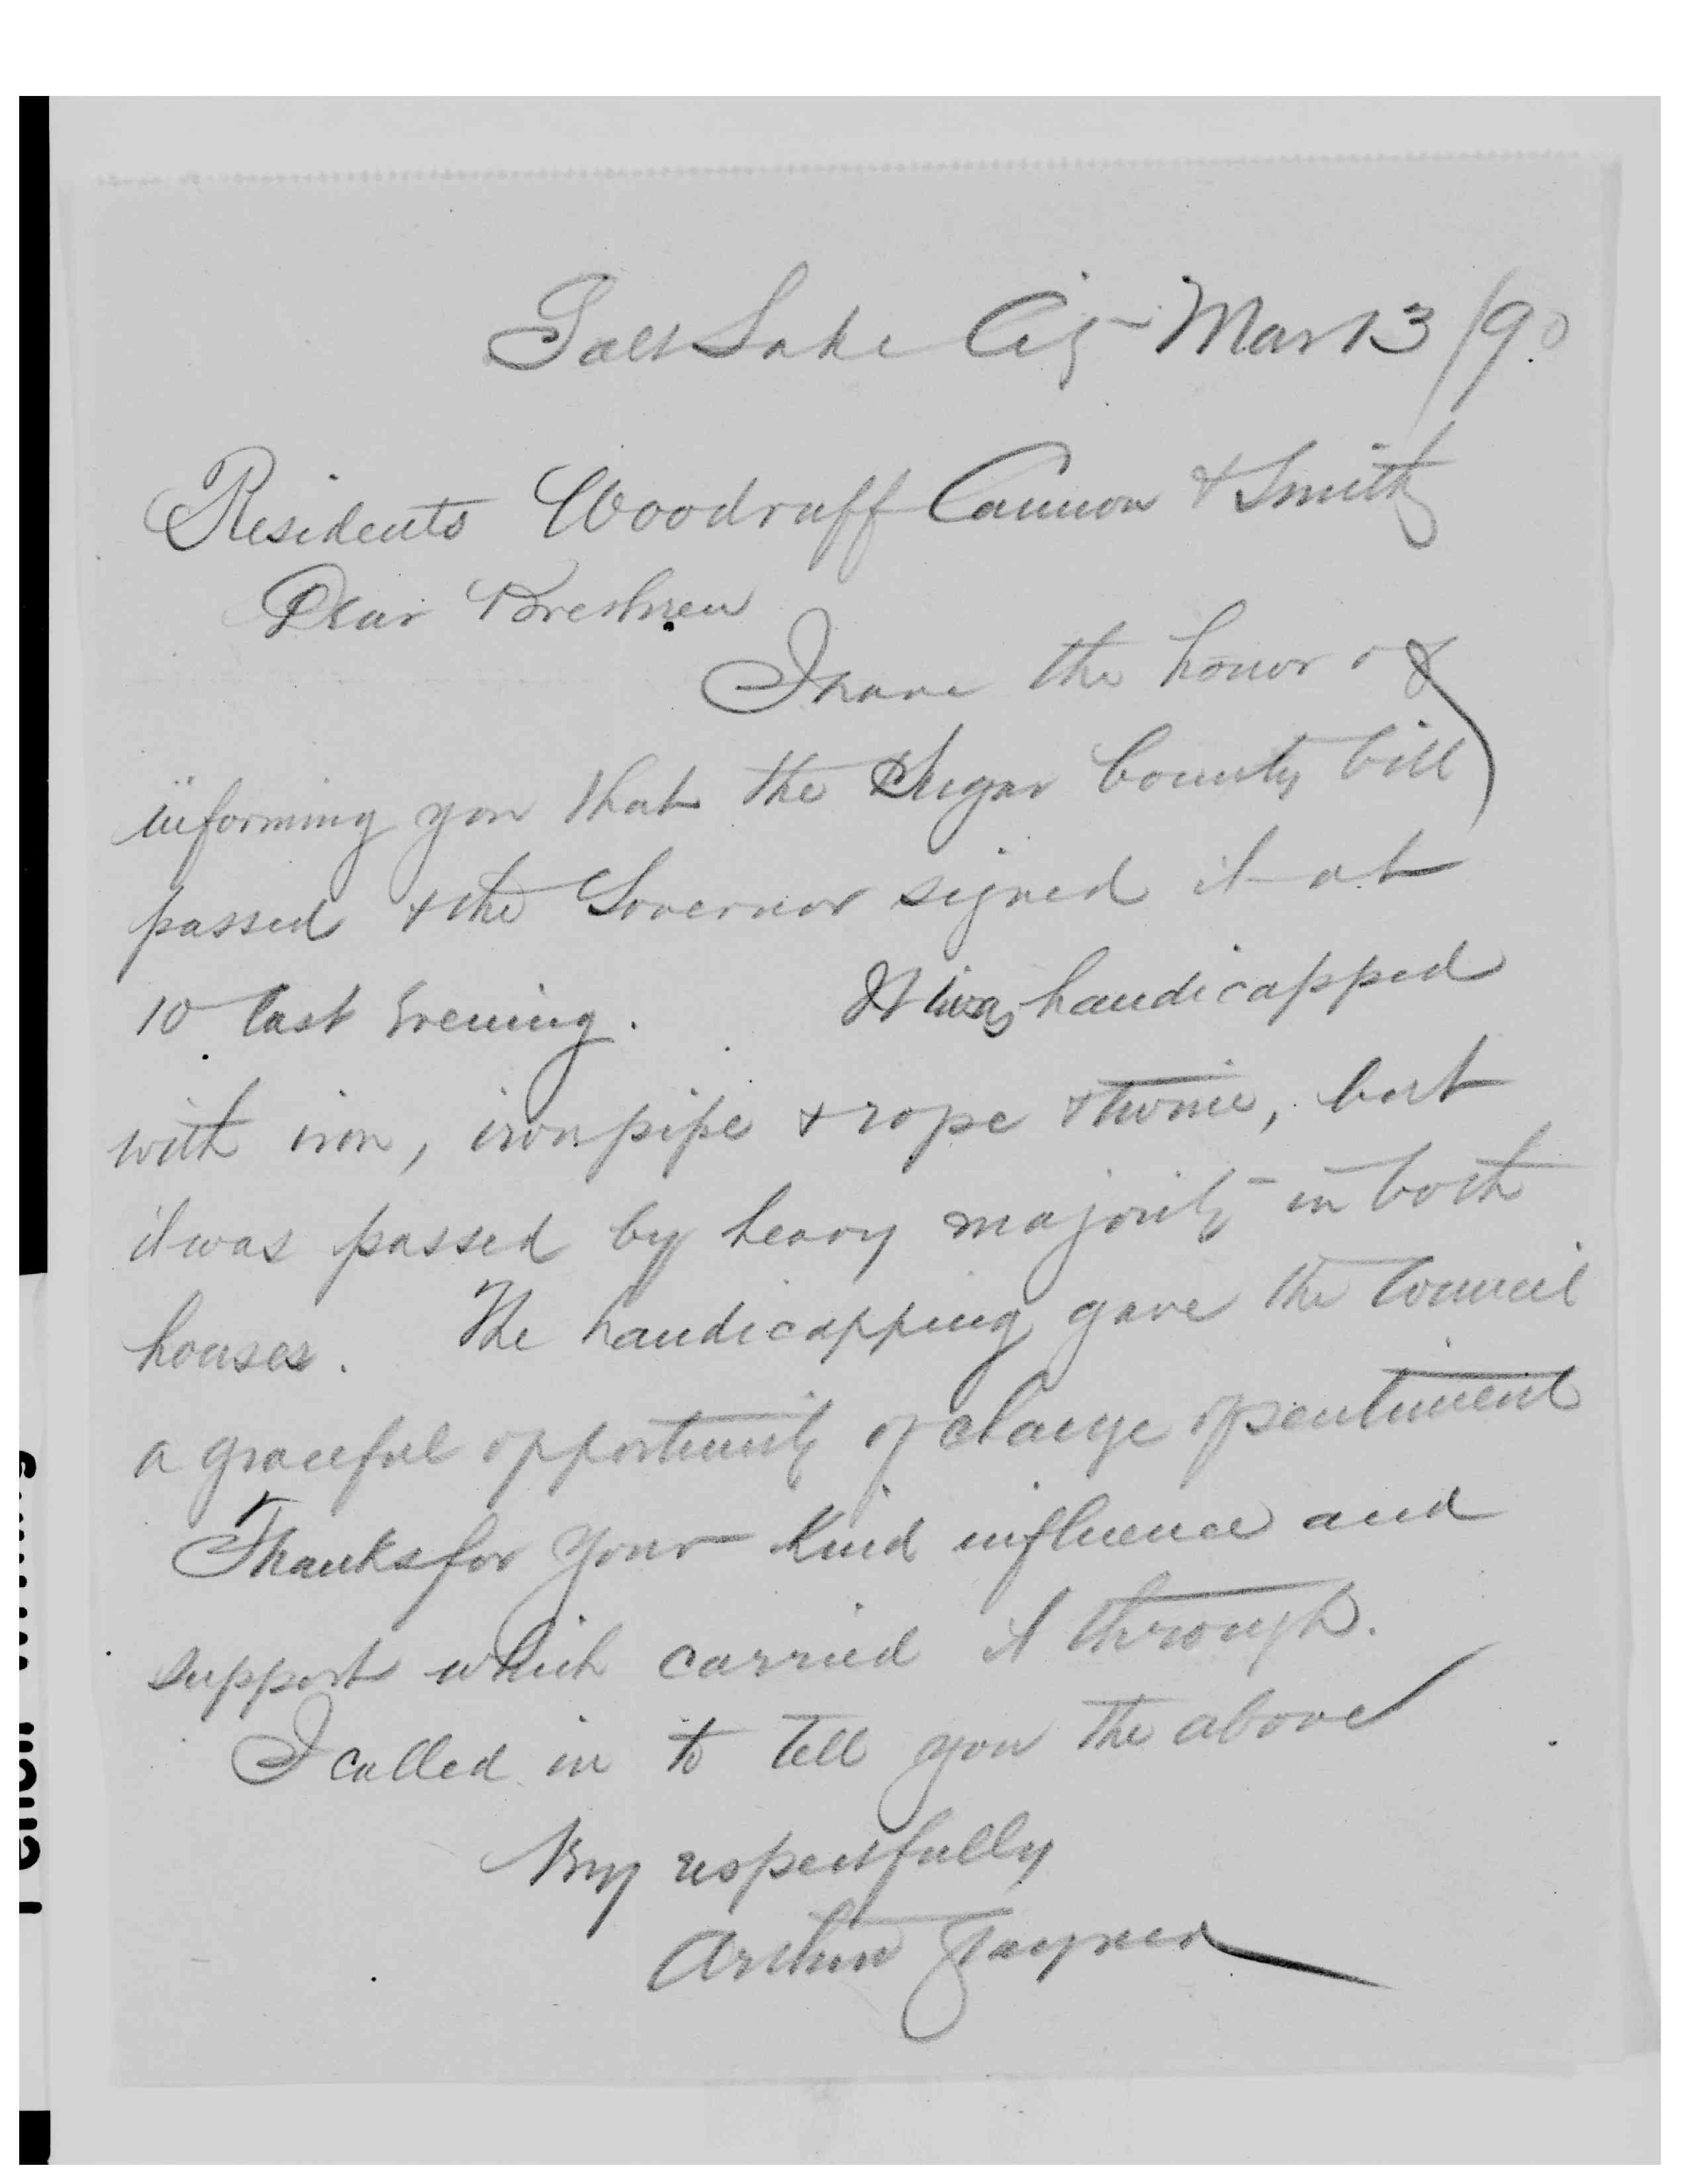 Salt Lake City Mar 13/90
Presidents Woodruff Cannon & Smith
Dear Brethren
I have the honor of
informing you that the Sugar bounty bill
passed & the Governor signed it at
10 last Evening. It was handicapped
with iron, iron pipe & rope & twine, but
it was passed by heavy majority in both
houses. The handicapping gave the Council
a graceful opportunity of change of sentiment
Thanks for your kind influence and
support which carried it through.
I called in to tell you the above
Very respectfully
Arthur Stayner